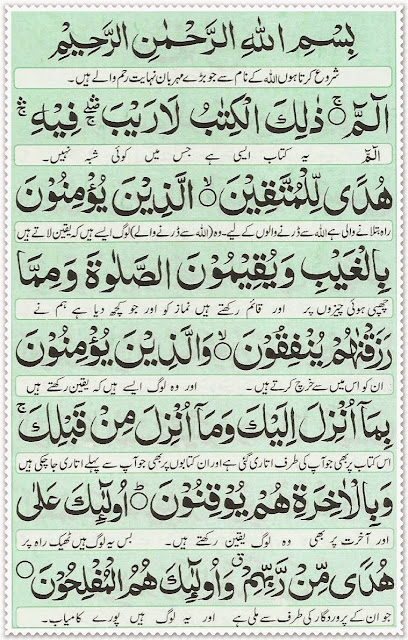 بِسْمِ اللهِ الرَّحْمٰنِ الرَّحِيْمِ
شروع کرتا ہوں اللہ کے نام سے جو بڑے مہربان نہایت رحم والے ہیں۔
الٓمّٓ ۚ ذٰلِكَ الْكِتٰبُ لَا رَيْبَ ۛۖ فِيْهِ ۛۚ
الٓمّٓ یہ کتاب ایسی ہے جس میں کوئی شبہ نہیں۔
هُدًى لِّلْمُتَّقِيْنَ ۙ الَّذِيْنَ يُؤْمِنُوْنَ
راہ بتلانے والی ہے اللہ سے ڈرنے والوں کے لیے۔ وہ (اللہ سے ڈرنے والے) لوگ ایسے ہیں کہ یقین لاتے ہیں
بِالْغَيْبِ وَيُقِيْمُوْنَ الصَّلٰوةَ وَمِمَّا
چھپی ہوئی چیزوں پر اور قائم رکھتے ہیں نماز کو اور جو کچھ دیا ہے ہم نے
رَزَقْنٰهُمْ يُنْفِقُوْنَ ۙ وَالَّذِيْنَ يُؤْمِنُوْنَ
ان کو اس میں سے خرچ کرتے ہیں۔ اور وہ لوگ ایسے ہیں کہ یقین رکھتے ہیں
بِمَآ اُنْزِلَ اِلَيْكَ وَمَآ اُنْزِلَ مِنْ قَبْلِكَ ۚ
اس کتاب پر بھی جو آپ کی طرف اتاری گئی ہے اور ان کتابوں پر بھی جو آپ سے پہلے اتاری جا چکی ہیں
وَبِالْاٰخِرَةِ هُمْ يُوْقِنُوْنَ ؕ اُولٰٓئِكَ عَلٰى
اور آخرت پر بھی وہ لوگ یقین رکھتے ہیں۔ بس یہ لوگ ہیں ٹھیک راہ پر
هُدًى مِّنْ رَّبِّهِمْ ۗ وَاُولٰٓئِكَ هُمُ الْمُفْلِحُوْنَ
جو ان کے پروردگار کی طرف سے ملی ہے اور یہ لوگ ہیں پورے کامیاب۔